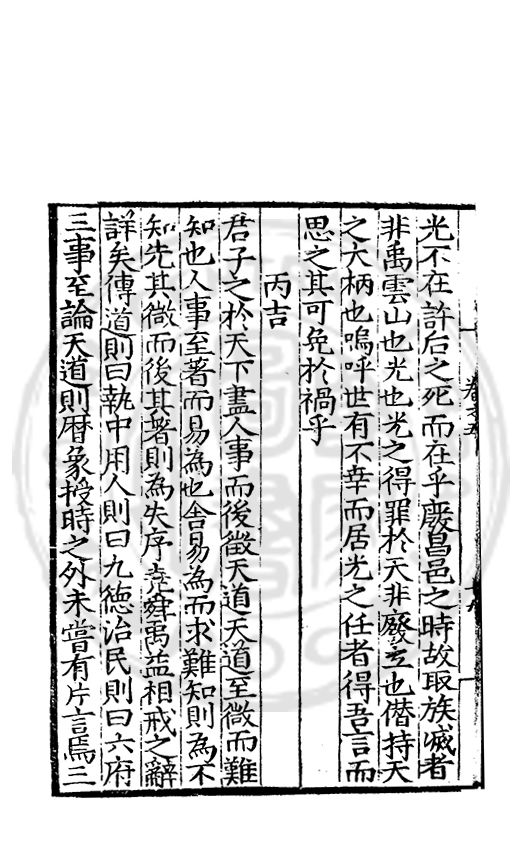 光不在許后之死而在乎廢昌邑之時故取族滅者
非禹雲山也光也光之得罪於天非廢立也僭持天
之大柄也嗚呼世有不幸而居光之任者得吾言而
思之其可免於禍乎
丙吉
君子之於天下盡人事而後徵天道天道至微而難
知也人事至著而易為也舍易為而求難知則為不
知先其微而後其著則為失序堯舜禹益相戒之辭
詳矣傳道則曰執中用人則曰九德治民則曰六府
三事至論天道則曆象授時之外未嘗有片言焉三